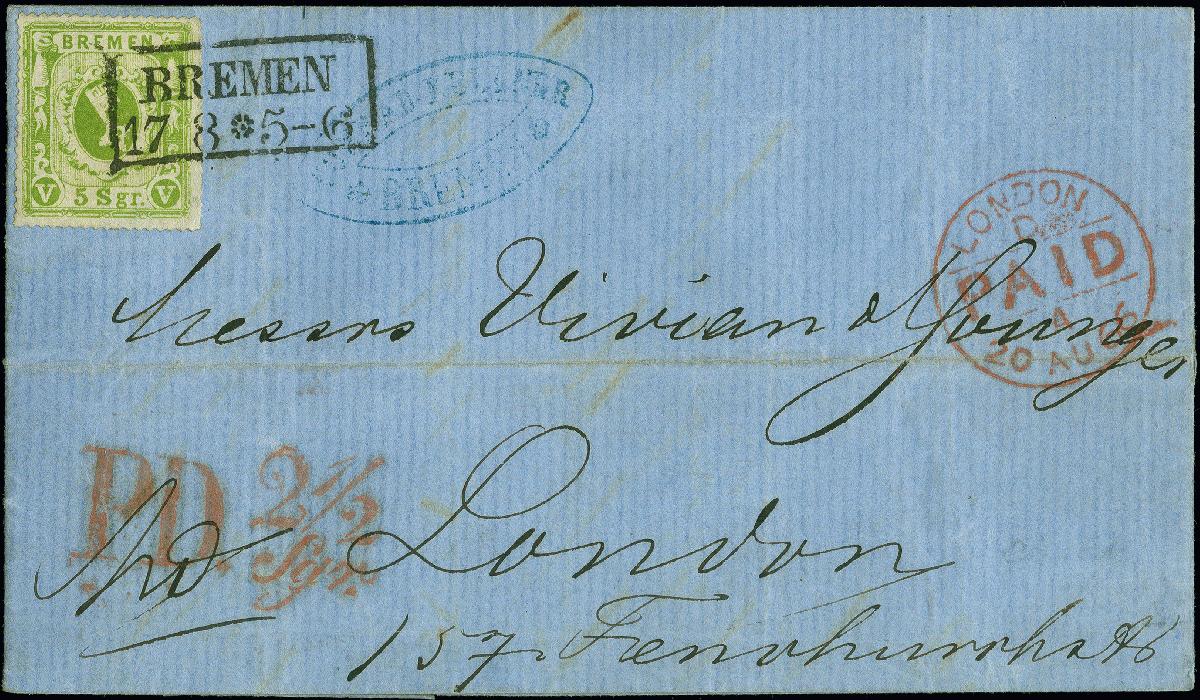 BREMEN
V 5 Sgr. V
BREMEN
17 8 * 5-6
BREMEN
LONDON
PAID
20 AU
Messrs Vivian & Younger
P.D. 2 1/2 Sgr.
ppd London
157. Fenchurch st